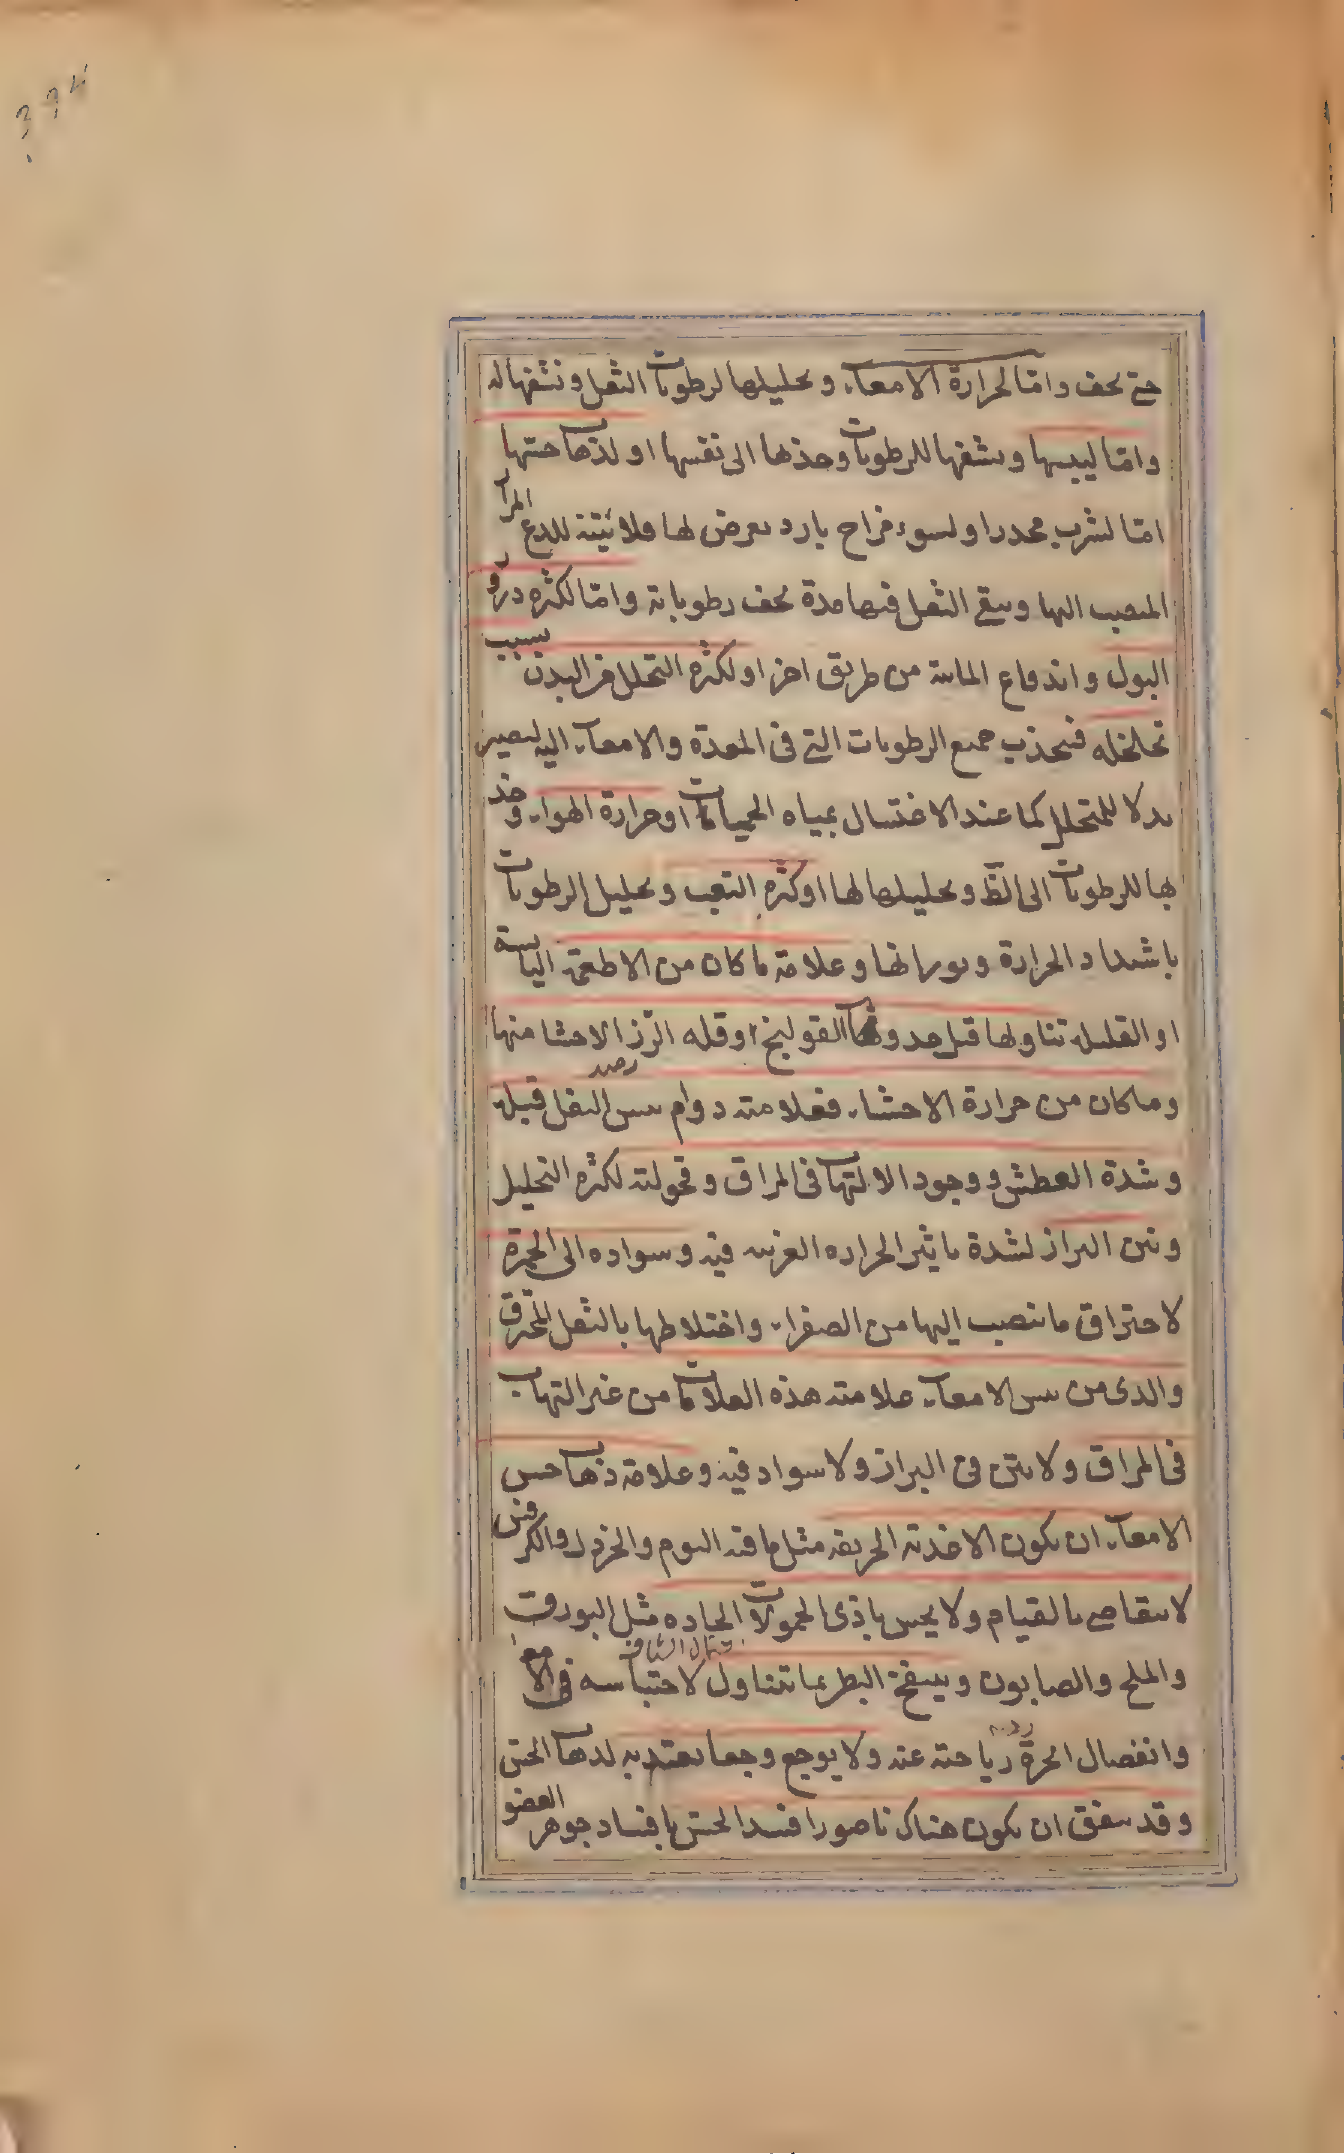 حتى يجف واما لحرارة الامعاء وتحليلها لرطوبات الثفل ونشفها له
واما ليبسها ونشفها للرطوبات وجذبها الى نفسها او لذهاب حسها
اما لشرب مخدر او لسوء مزاج بارد يعرض لها فلا ينبه للذع المرار
المنصب اليها ويبقى الثفل فيها مدة يجف رطوباته واما لكثرة درور
البول واندفاع المائية من طريق اخر او لكثرة التحلل من البدن بسبب
تخلخله فينجذب جميع الرطوبات التى فى المعدة والامعاء اليه ليصير
بدلا للمتحلل كما عند الاغتسال بمياه الحميات او حرارة الهواء وجذ
بها للرطوبات الى الظ وتحليلها لها او كثرة التعب وتحليل الرطوبات
باشتداد الحرارة وثورانها وعلامة ما كان من الاطعمة اليابسة
او القليلة تناولها قبل حدوثها القولنج او قله الرز الاحشا منها
وما كان من حرارة الاحشاء فعلامته دوام يبس الثفل قبله
وشدة العطش ووجود الالتهاب فى المراق وقحولته لكثرة التحليل
ونتن البراز لشدة تاثير الحراره الغريبه فيه وسواده الى الحمرة
لاحتراق ما تنصب اليها من الصفراء واختلاطها بالثفل المحترق
والذى من يبس الامعاء علامته هذه العلامات من غير التهاب
فى المراق ولا نتن فى البراز ولا سواد فيه وعلامة ذهاب حس
الامعاء ان يكون الاغذية الحريفه مثل ما فيه الثوم والخردل والكرفس
لا يتقاضى بالقيام ولا يحس باذى الحمولات الحاده مثل البورق
والملح والصابون وينتفخ البطن بما تتناول لاحتباسه فى الامعا
وانفصال ابخرة رياحته عنه ولا يوجع وجعا يعتد به لذهاب الحس
وقد يتفق ان يكون هناك ناصورا فسد الحس بافساد جوهر العضو